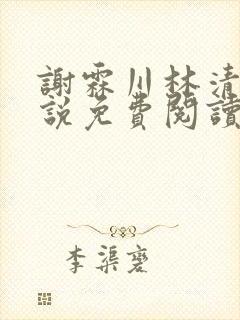 謝霖川林清
説免費閱讀
李渠褰